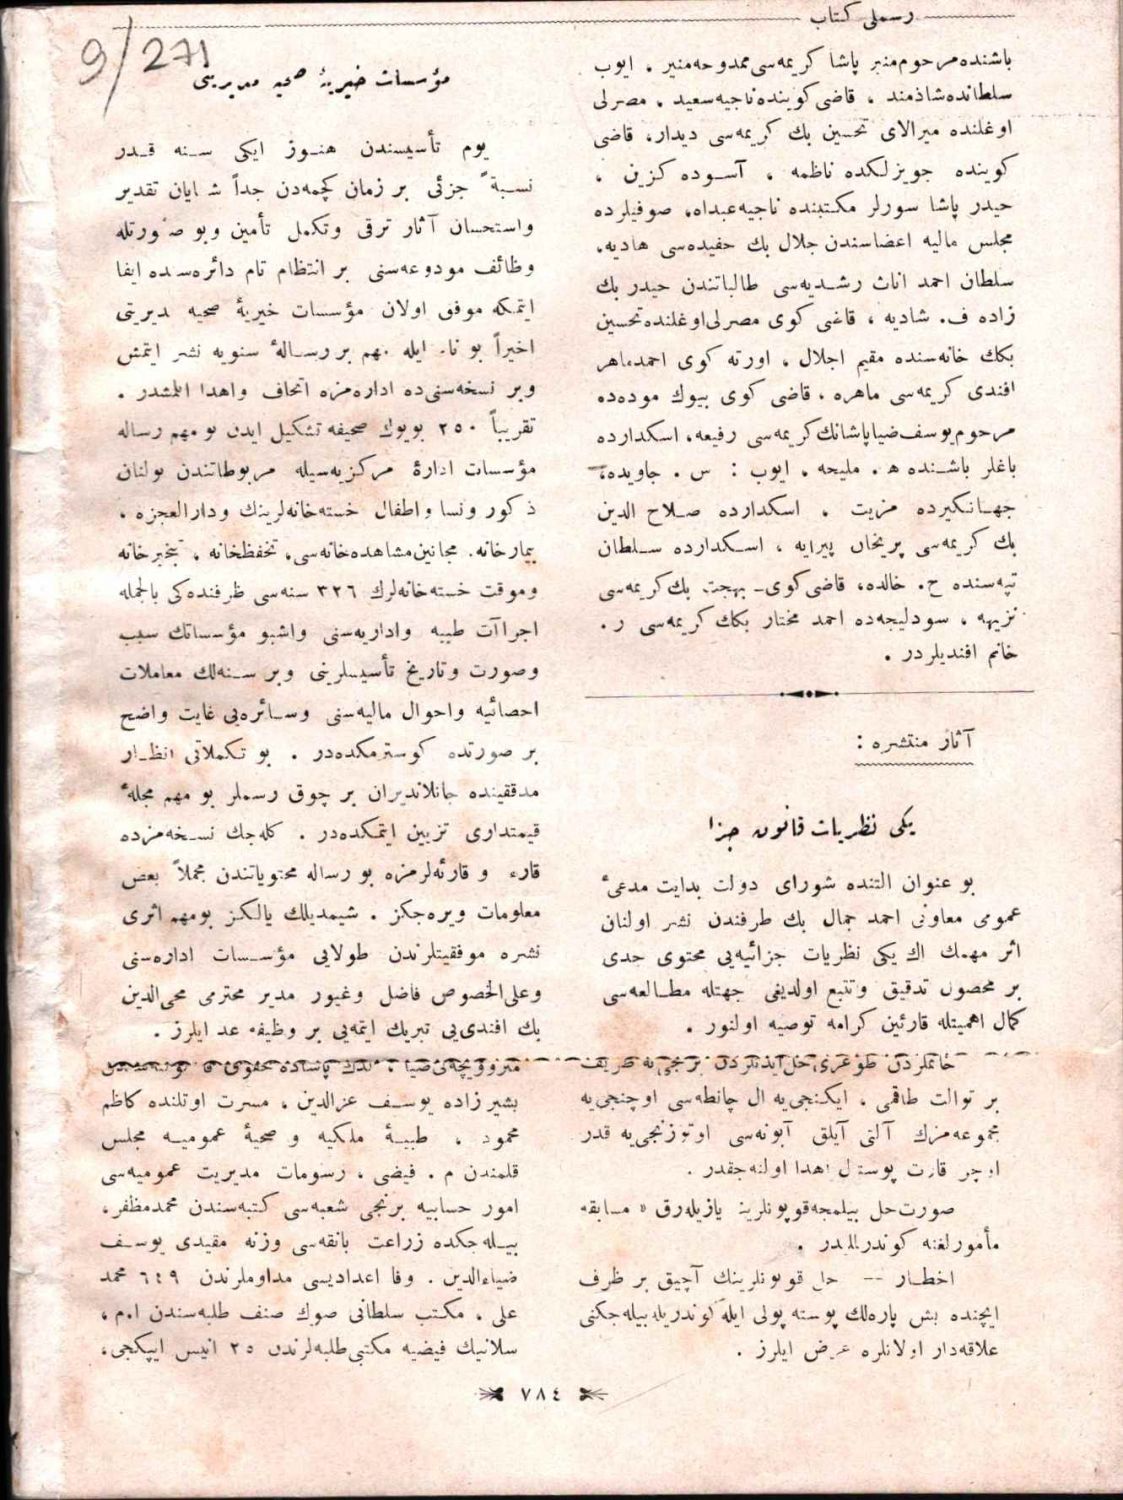 رسملی كتاب
باشنده مرحوم منیر پاشا كریمه‌سی ممدوحه منیر ، ایوب
سلطانده شاذمند ، قاضی كوینده ناجیه سعید ، مصرلی
اوغلنده میرالای تحسین بك كریمه‌سی دیدار، قاضی
كوینده جویزلكده ناظمه ، آسوده كزین ،
حیدر پاشا سورلر مكتبنده ناجیه عبداه، صوفیلرده
مجلس مالیه اعضاسندن جلال بك حفیده‌سی هادیه،
سلطان احمد اناث رشدیه‌سی طالباتندن حیدر بك
زاده ف. شادیه ، قاضی كوی مصرلی‌اوغلنده تحسین
بكك خانه‌سنده مقیم اجلال ، اورته كوی احمد ماهر
افندی كریمه‌سی ماهره ، قاضی كوی بیوك موده‌ده
مرحوم یوسف ضیا پاشانك كریمه‌سی رفیعه، اسكدارده
باغلر باشنده ه . ملیحه ، ایوب : س . جاویده،
جهانكیرده مزیت ، اسكدارده صلاح الدین
بك كریمه‌سی پریخان پیرایه ، اسكدارده سلطان
تپه‌سنده ح. خالده، قاضی كوی ـ بهجت بك كریمه‌سی
نزیهه ، سودلیجه‌ده احمد مختار بكك كریمه‌سی ر .
خانم افندیلردر .
آثار منتشره :
یكی نظریات قانون جزا
بو عنوان التنده شورای دولت بدایت مدعیٔ
عمومی معاونی احمد جمال بك طرفندن نشر اولنان
اثر مهمك اك یكی نظریات جزائیه‌یی محتوی جدی
بر محصول تدقیق وتتبع اولدیغی جهتله مطالعه‌سی
كمال اهمیتله قارئین كرامه توصیه اولنور .
خانملردن طوغری حل ایدنلردن برنجی‌یه ظریف
بر توالت طاقمی ، ایكنجی‌یه ال چانطه‌سی اوچنجی‌یه
مجموعه‌مزك آلتی آیلق آبونه‌سی اوتوزنجی‌یه قدر
اوچر قارت پوستال اهدا اولنه‌جقدر .
صورت حل بیلمجه قوپونلرینه یازیله‌رق « مسابقه
مأمورلغنه كوندرلملیدر .
اخطار -- حل قوپونلرینك آچیق بر ظرف
ایچنده بش پاره‌لك پوسته پولی ایله كوندریله بیله‌جكنی
علاقه‌دار اولانلره عرض ایلرز .
9/271
مؤسسات خیریهٔ صحیه مدیریتی
یوم تأسیسندن هنوز ایكی سنه قدر
نسبةً جزئی بر زمان كچمه‌دن جداً شایان تقدیر
واستحسان آثار ترقی وتكمل تأمین وبو صورتله
وظائف مودوعه‌سنی بر انتظام تام دائره‌سنده ایفا
ایتمكه موفق اولان مؤسسات خیریهٔ صحیه مدیریتی
اخیراً بو نام ایله مهم بر رسالهٔ سنویه نشر ایتمش
وبر نسخه‌سنی‌ده اداره‌مزه اتحاف واهدا ایلمشدر .
تقریباً ٢٥٠ بویوك صحیفه تشكیل ایدن بو مهم رساله
مؤسسات ادارهٔ مركزیه‌سیله مربوطاتندن بولنان
ذكور ونسا واطفال خسته‌خانه‌لرینك ودارالعجزه ،
بیمارخانه، مجانین مشاهده‌خانه‌سی، تحفظخانه ، تبخیرخانه
وموقت خسته‌خانه‌لرك ٣٢٦ سنه‌سی ظرفنده‌كی بالجمله
اجراآت طبیه واداریه‌سنی واشبو مؤسساتك سبب
وصورت وتاریخ تأسیسلرینی وبر سنه‌لك معاملات
احصائیه واحوال مالیه‌سنی وسائره‌یی غایت واضح
بر صورتده كوسترمكده‌در . بو تكملاتی انظار
مدققینده جانلاندیران بر چوق رسملر بو مهم مجلهٔ
قیمتداری تزیین ایتمكده‌در . كله‌جك نسخه‌مزده
قارء و قارئه‌لرمزه بو رساله محتویاتندن مجملاً بعض
معلومات ویره‌جكز . شیمدیلك یالكز بومهم اثری
نشره موفقیتلرندن طولایی مؤسسات اداره‌سنی
وعلی‌الخصوص فاضل وغیور مدیر محترمی محی‌الدین
بك افندی‌یی تبریك ایتمه‌یی بر وظیفه عد ایلرز .
بشیر زاده یوسف عزالدین ، مسرت اوتلنده كاظم
محمود ، طبیهٔ ملكیه و صحیهٔ عمومیه مجلس
قلمندن م . فیضی ، رسومات مدیریت عمومیه‌سی
امور حسابیه برنجی شعبه‌سی كتبه‌سندن محمد مظفر ،
بیله‌جكده زراعت بانقه‌سی وزنه مقیدی یوسف
ضیاءالدین . وفا اعدادیسی مداوملرندن ٦٤٩ محمد
علی ، مكتب سلطانی صوك صنف طلبه‌سندن ا.م ،
سلانیك فیضیه مكتبی طلبه‌لرندن ٢٥ انیس ایپكجی،
٧٨٤